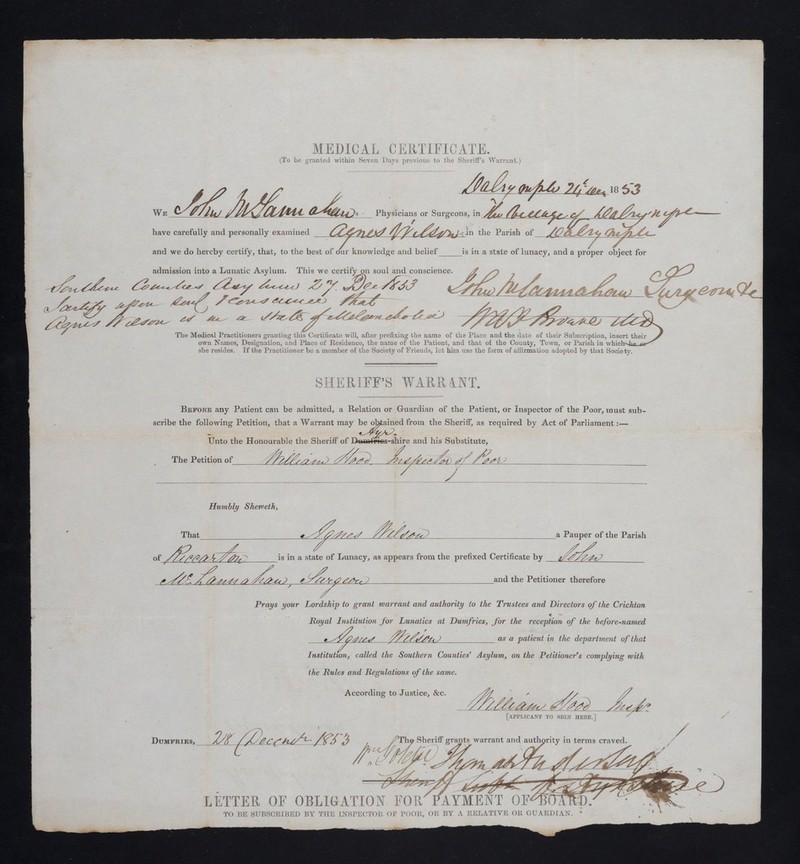 MEDICAL CERTIFICATE.
(To be granted within Seven Days previous to the Sheriff's Warrant.)
Dalrymple 24 Dec 1853
WE John McLannahan Physicians or Surgeons, in the Village of Dalrymple
have carefully and personally examined Agnes Wilson in the Parish of Dalrymple
and we do hereby certify, that, to the best of our knowledge and belief is in a state of lunacy, and a proper object for
admission into a Lunatic Asylum. This we certify on soul and conscience.
Southern Counties Asylum 27 Dec 1853 John McLannahan Surgeon &c
I certify upon soul & conscience that
Agnes Wilson is in a state of Melancholia W A F Browne MD
The Medical Practitioners granting this Certificate will, after prefixing the name of the Place and the date of their Subscription, insert their
own Names, Designation, and Place of Residence, the name of the Patient, and that of the County, Town, or Parish in which he or
she resides. If the Practitioner be a member of the Society of Friends, let him use the form of affirmation adopted by that Society.
SHERIFF'S WARRANT.
BEFORE any Patient can be admitted, a Relation or Guardian of the Patient, or Inspector of the Poor, must sub-
scribe the following Petition, that a Warrant may be obtained from the Sheriff, as required by Act of Parliament:—
Ayr
Unto the Honourable the Sheriff of Dumfries-shire and his Substitute,
The Petition of William Hood Inspector of Poor
Humbly Sheweth,
That Agnes Wilson a Pauper of the Parish
of Riccarton is in a state of Lunacy, as appears from the prefixed Certificate by John
McLannahan, Surgeon and the Petitioner therefore
Prays your Lordship to grant warrant and authority to the Trustees and Directors of the Crichton
Royal Institution for Lunatics at Dumfries, for the reception of the before-named
Agnes Wilson as a patient in the department of that
Institution, called the Southern Counties' Asylum, on the Petitioner's complying with
the Rules and Regulations of the same.
According to Justice, &c.
William Hood Inspr.
[APPLICANT TO SIGN HERE.]
DUMFRIES, 28 Decemr 1853 The Sheriff grants warrant and authority in terms craved.
Sheriff Subt
LETTER OF OBLIGATION FOR PAYMENT OF BOARD.
TO BE SUBSCRIBED BY THE INSPECTOR OF POOR, OR BY A RELATIVE OR GUARDIAN.